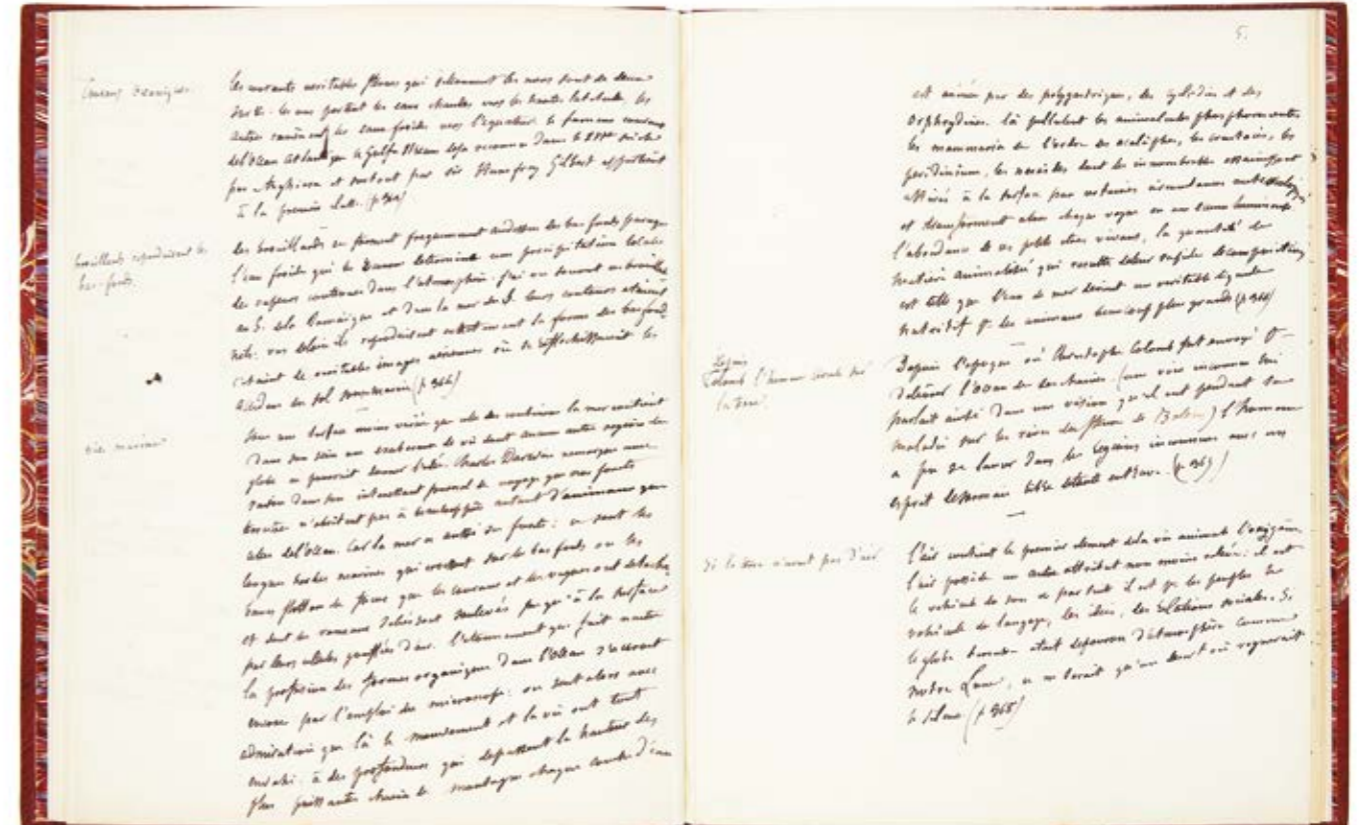 Courants océaniques
les courants véritables fleuves qui sillonnent les mers sont de deux
sorte. les uns portent les eaux chaudes vers les hautes latitudes, les
autres ramènent les eaux froides vers l'équateur. le fameux courant
de l'océan atlantique le Gulf Stream déjà reconnu dans le XVIe siècle
par Anghiera et surtout par Sir Humfrey Gilbert appartient
à la première
brouillards reproduisant les
bas-fonds.
les brouillards se forment fréquemment audessus des bas fonds parceque
l'eau froide qui le détermine une précipitation locale
de vapeurs contenues dans l'atmosphère. j'ai vu souvent ces brouillards
au S. de la Jamaïque et dans la mer du S. leurs contours étaient
nets. vus de loin ils reproduisent exactement la forme des bas fonds,
c'étaient de véritables images aériennes où se réfléchissaient les
accidens du sol sousmarin (p. 366)
vie marine
Sous une surface moins variée que celle des continens la mer contient
dans son sein une exubérance de vie dont aucune autre région du
globe ne pourrait donner l'idée. Charles Darwin remarque avec
raison dans son intéressant journal de voyage que nos forêts
terrestres n'abritent pas à beaucoup près autant d'animaux que
celles de l'Océan. Car la mer a aussi ses forêts: ce sont les
longues herbes marines qui croissent sur les bas fonds ou les
bancs flottans de fucus que les courans et les vagues ont détachés
et dont les rameaux déliés sont soulevés jusqu'à la surface
par leurs cellules gonflées d'air. l'étonnement que fait naître
la profusion des formes organiques dans l'Océan s'accroît
encore par l'emploi du microscope: on sent alors avec
admiration que là le mouvement et la vie ont tout
envahi. à des profondeurs qui dépassent la hauteur des
plus puissantes chaînes de montagnes chaque couche d'eau
5.
est animée par des polygastriques, des cyclidies et des
ophrydines. là pullulent les animalcules phosphorescents
les mammaria de l'ordre des acalèphes, les crustacés, les
peridinium, les néréides dont les innombrables essaims sont
attirés à la surface par certaines circonstances météorologiques
et transforment alors chaque vague en une écume lumineuse
l'abondance de ces petits êtres vivans, la quantité de
matière animalisée qui résulte de leur rapide décomposition
est telle que l'eau de mer devient un véritable liquide
nutritif pr. des animaux beaucoup plus grands (p. 366)
Depuis
Colomb l'homme sur
la terre.
Depuis l'époque où Christophe Colomb fut envoyé pr.
délivrer l'océan de ses chaînes (une voix inconnue lui
parlait ainsi dans une vision qu'il eut pendant sa
maladie sur les rives du fleuve de Belem) l'homme
a pu se lancer dans les régions inconnues avec un
esprit désormais libre de toute entrave. (p. 365)
Si la terre n'avait pas d'air
l'air contient le premier élément de la vie animale l'oxygène.
l'air possède un autre attribut non moins il est
le véhicule du son et par suite il est pr. les peuples le
véhicule du langage, des idées, des relations sociales. Si
le globe terrestre était dépourvu d'atmosphère comme
notre Lune, ce ne serait qu'un désert où régnerait
le silence (p. 368)